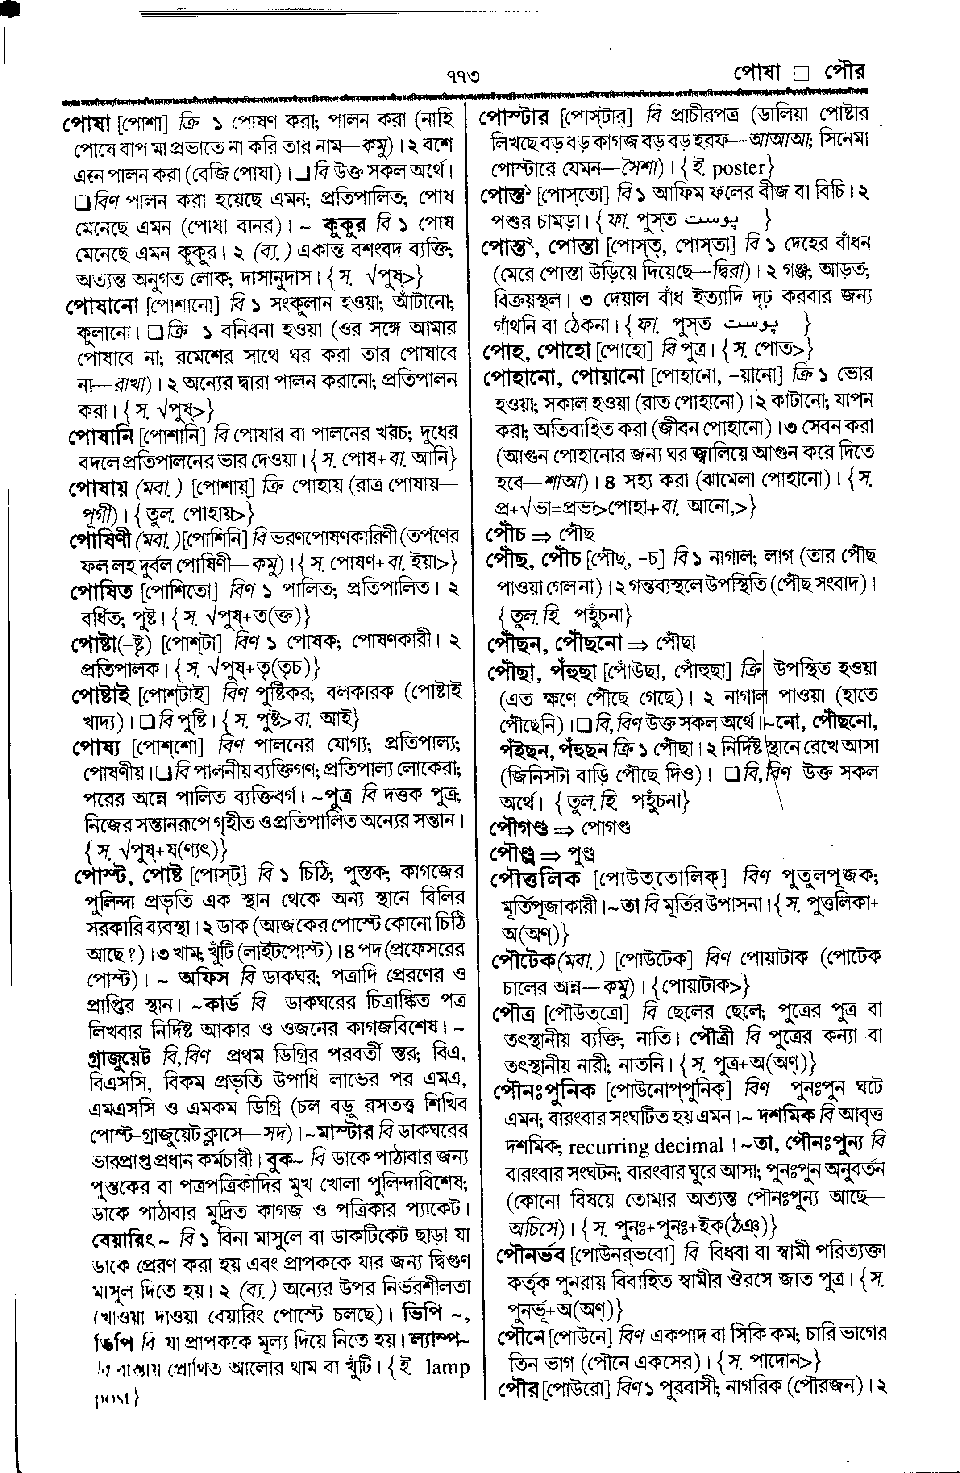 ৭৭৩
পোষা □ পৌর
পোষা [পোশা] ক্রি ১ পোষণ করা; পালন করা (নাহি
পোষে বাপ মা প্রভাতে না করি তার নাম—কমু)। ২ বশে
এনে পালন করা (বেজি পোষা)। ❑ বি উক্ত সকল অর্থে।
❑ বিণ পালন করা হয়েছে এমন; প্রতিপালিত; পোষ
মেনেছে এমন (পোষা বানর)। ~ কুকুর বি ১ পোষ
মেনেছে এমন কুকুর। ২ (ব্য.) একান্ত বশংবদ ব্যক্তি;
অত্যন্ত অনুগত লোক; দাসানুদাস। {স. √পুষ্>}
পোষানো [পোশানো] বি ১ সংকুলান হওয়া; আঁটানো;
কুলানো। ❑ ক্রি ১ বনিবনা হওয়া (ওর সঙ্গে আমার
পোষাবে না; রমেশের সাথে ঘর করা তার পোষাবে
না—রাখা)। ২ অন্যের দ্বারা পালন করানো; প্রতিপালন
করা। {স. √পুষ্>}
পোষানি [পোশানি] বি পোষার বা পালনের খরচ; দুধের
বদলে প্রতিপালনের ভার দেওয়া। {স. পোষ+বা. আনি}
পোষায় (মবা.) [পোশায়্] ক্রি পোহায় (রাত্র পোষায়—
পূগী)। {তুল. পোহায়>}
পোষিণী (মবা.) [পোশিনি] বি ভরণপোষণকারিণী (তর্পণের
ফল লহ দুর্বল পোষিণী—কমু)। {স. পোষণ+বা. ইয়া>}
পোষিত [পোশিতো] বিণ ১ পালিত; প্রতিপালিত। ২
বর্ধিত; পুষ্ট। {স. √পুষ্+ত(ক্ত)}
পোষ্টা(-ষ্টৃ) [পোশ্‌টা] বিণ ১ পোষক; পোষণকারী। ২
প্রতিপালক। {স. √পুষ্+তৃ(তৃচ)}
পোষ্টাই [পোশ্‌টাই] বিণ পুষ্টিকর; বলকারক (পোষ্টাই
খাদ্য)। ❑ বি পুষ্টি। {স. পুষ্ট>বা. আই}
পোষ্য [পোশ্‌শো] বিণ পালনের যোগ্য; প্রতিপাল্য;
পোষণীয়। ❑ বি পালনীয় ব্যক্তিগণ; প্রতিপাল্য লোকেরা;
পরের অন্নে পালিত ব্যক্তিবর্গ। ~পুত্র বি দত্তক পুত্র,
নিজের সন্তানরূপে গৃহীত ও প্রতিপালিত অন্যের সন্তান।
{স. √পুষ্+য(ণ্যৎ)}
পোস্ট, পোষ্ট [পোস্‌ট] বি ১ চিঠি; পুস্তক; কাগজের
পুলিন্দা প্রভৃতি এক স্থান থেকে অন্য স্থানে বিলির
সরকারি ব্যবস্থা। ২ ডাক (আজকের পোস্টে কোনো চিঠি
আছে?)। ৩ খাম; খুঁটি (লাইটপোস্ট)। ৪ পদ (প্রফেসরের
পোস্ট)। ~ অফিস বি ডাকঘর; পত্রাদি প্রেরণের ও
প্রাপ্তির স্থান। ~কার্ড বি ডাকঘরের চিত্রাঙ্কিত পত্র
লিখবার নির্দিষ্ট আকার ও ওজনের কাগজবিশেষ। ~
গ্রাজুয়েট বি, বিণ প্রথম ডিগ্রির পরবর্তী স্তর; বিএ,
বিএসসি, বিকম প্রভৃতি উপাধি লাভের পর এমএ,
এমএসসি ও এমকম ডিগ্রি (চল বড়ু রসতত্ত্ব শিখিব
পোস্ট-গ্রাজুয়েট ক্লাসে—সদ)। ~মাস্টার বি ডাকঘরের
ভারপ্রাপ্ত প্রধান কর্মচারী। বুক~ বি ডাকে পাঠাবার জন্য
পুস্তকের বা পত্রপত্রিকাদির মুখ খোলা পুলিন্দাবিশেষ;
ডাকে পাঠাবার মুদ্রিত কাগজ ও পত্রিকার প্যাকেট।
বেয়ারিং ~ বি ১ বিনা মাসুলে বা ডাকটিকেট ছাড়া যা
ডাকে প্রেরণ করা হয় এবং প্রাপককে যার জন্য দ্বিগুণ
মাসূল দিতে হয়। ২ (ব্য.) অন্যের উপর নির্ভরশীলতা
(খাওয়া দাওয়া বেয়ারিং পোস্টে চলছে)। ভিপি ~,
ভিপি বি যা প্রাপককে মূল্য দিয়ে নিতে হয়। ল্যাম্প~
বি রাস্তায় প্রোথিত আলোর থাম বা খুঁটি। {ই. lamp
post}
পোস্টার [পোস্‌টার্] বি প্রাচীরপত্র (ডালিয়া পোষ্টার
লিখছে বড় বড় কাগজ বড় বড় হরফ—আআআ; সিনেমা
পোস্টারে যেমন—সৈশা)। {ই. poster}
পোস্ত১ [পোস্‌তো] বি ১ আফিম ফলের বীজ বা বিচি। ২
পশুর চামড়া। {ফা. পুস্‌ত پوست}
পোস্ত২, পোস্তা [পোস্‌ত্, পোস্‌তা] বি ১ দেহের বাঁধন
(মেরে পোস্তা উড়িয়ে দিয়েছে—দ্বিরা)। ২ গঞ্জ; আড়ত;
বিক্রয়স্থল। ৩ দেয়াল বাঁধ ইত্যাদি দৃঢ় করবার জন্য
গাঁথনি বা ঠেকনা। {ফা. পুস্‌ত پوست}
পোহ, পোহো [পোহো] বি পুত্র। {স. পোত>}
পোহানো, পোয়ানো [পোহানো, -য়ানো] ক্রি ১ ভোর
হওয়া; সকাল হওয়া (রাত পোহানো)। ২ কাটানো; যাপন
করা; অতিবাহিত করা (জীবন পোহানো)। ৩ সেবন করা
(আগুন পোহানোর জন্য ঘর জ্বালিয়ে আগুন করে দিতে
হবে—শআ)। ৪ সহ্য করা (ঝামেলা পোহানো)। {স.
প্র+√ভা=প্রভ>পোহা+বা. আনো,>}
পৌচ ⇒ পৌঁছ
পৌঁছ, পৌঁচ [পৌঁছ, -চ] বি ১ নাগাল; লাগ (তার পৌঁছ
পাওয়া গেল না)। ২ গন্তব্যস্থলে উপস্থিতি (পৌঁছ সংবাদ)।
{তুল. হি. পহুঁচনা}
পৌঁছন, পৌঁছনো ⇒ পৌঁছা
পৌঁছা, পঁহুছা [পৌঁউছা, পৌঁহুছা] ক্রি উপস্থিত হওয়া
(এত ক্ষণে পৌঁছে গেছে)। ২ নাগাল পাওয়া (হাতে
পৌঁছেনি)। ❑ বি, বিণ উক্ত সকল অর্থে। ~নো, পৌঁছনো,
পঁইছন, পঁহুছন ক্রি ১ পৌঁছা। ২ নির্দিষ্ট স্থানে রেখে আসা
(জিনিসটা বাড়ি পৌঁছে দিও)। ❑ বি, বিণ উক্ত সকল
অর্থে। {তুল. হি. পহুঁচনা}
পৌগণ্ড ⇒ পোগণ্ড
পৌণ্ড্র ⇒ পুণ্ড্র
পৌত্তলিক [পোউত্‌তোলিক্] বিণ পুতুলপূজক;
মূর্তিপূজাকারী। ~তা বি মূর্তির উপাসনা। {স. পুত্তলিকা+
অ(অণ্)}
পৌটেক(মবা.) [পোউটেক] বিণ পোয়াটাক (পোটেক
চালের অন্ন—কমু)। {পোয়াটাক>}
পৌত্র [পৌউত্‌ত্রো] বি ছেলের ছেলে; পুত্রের পুত্র বা
তৎস্থানীয় ব্যক্তি; নাতি। পৌত্রী বি পুত্রের কন্যা বা
তৎস্থানীয় নারী; নাতনি। {স. পুত্র+অ(অণ্)}
পৌনঃপুনিক [পোউনোপ্‌পুনিক্] বিণ পুনঃপুন ঘটে
এমন; বারংবার সংঘটিত হয় এমন। ~ দশমিক বি আবৃত্ত
দশমিক; recurring decimal। ~তা, পৌনঃপুন্য বি
বারংবার সংঘটন; বারংবার ঘুরে আসা; পুনঃপুন অনুবর্তন
(কোনো বিষয়ে তোমার অত্যন্ত পৌনঃপুন্য আছে—
অচিসে)। {স. পুনঃ+পুনঃ+ইক(ঠঞ্)}
পৌনর্ভব [পোউনর্‌ভবো] বি বিধবা বা স্বামী পরিত্যক্তা
কর্তৃক পুনরায় বিবাহিত স্বামীর ঔরসে জাত পুত্র। {স.
পুনর্ভূ+অ(অণ্)}
পৌনে [পোউনে] বিণ একপাদ বা সিকি কম; চারি ভাগের
তিন ভাগ (পৌনে একসের)। {স. পাদোন>}
পৌর [পোউরো] বিণ ১ পুরবাসী; নাগরিক (পৌরজন)। ২